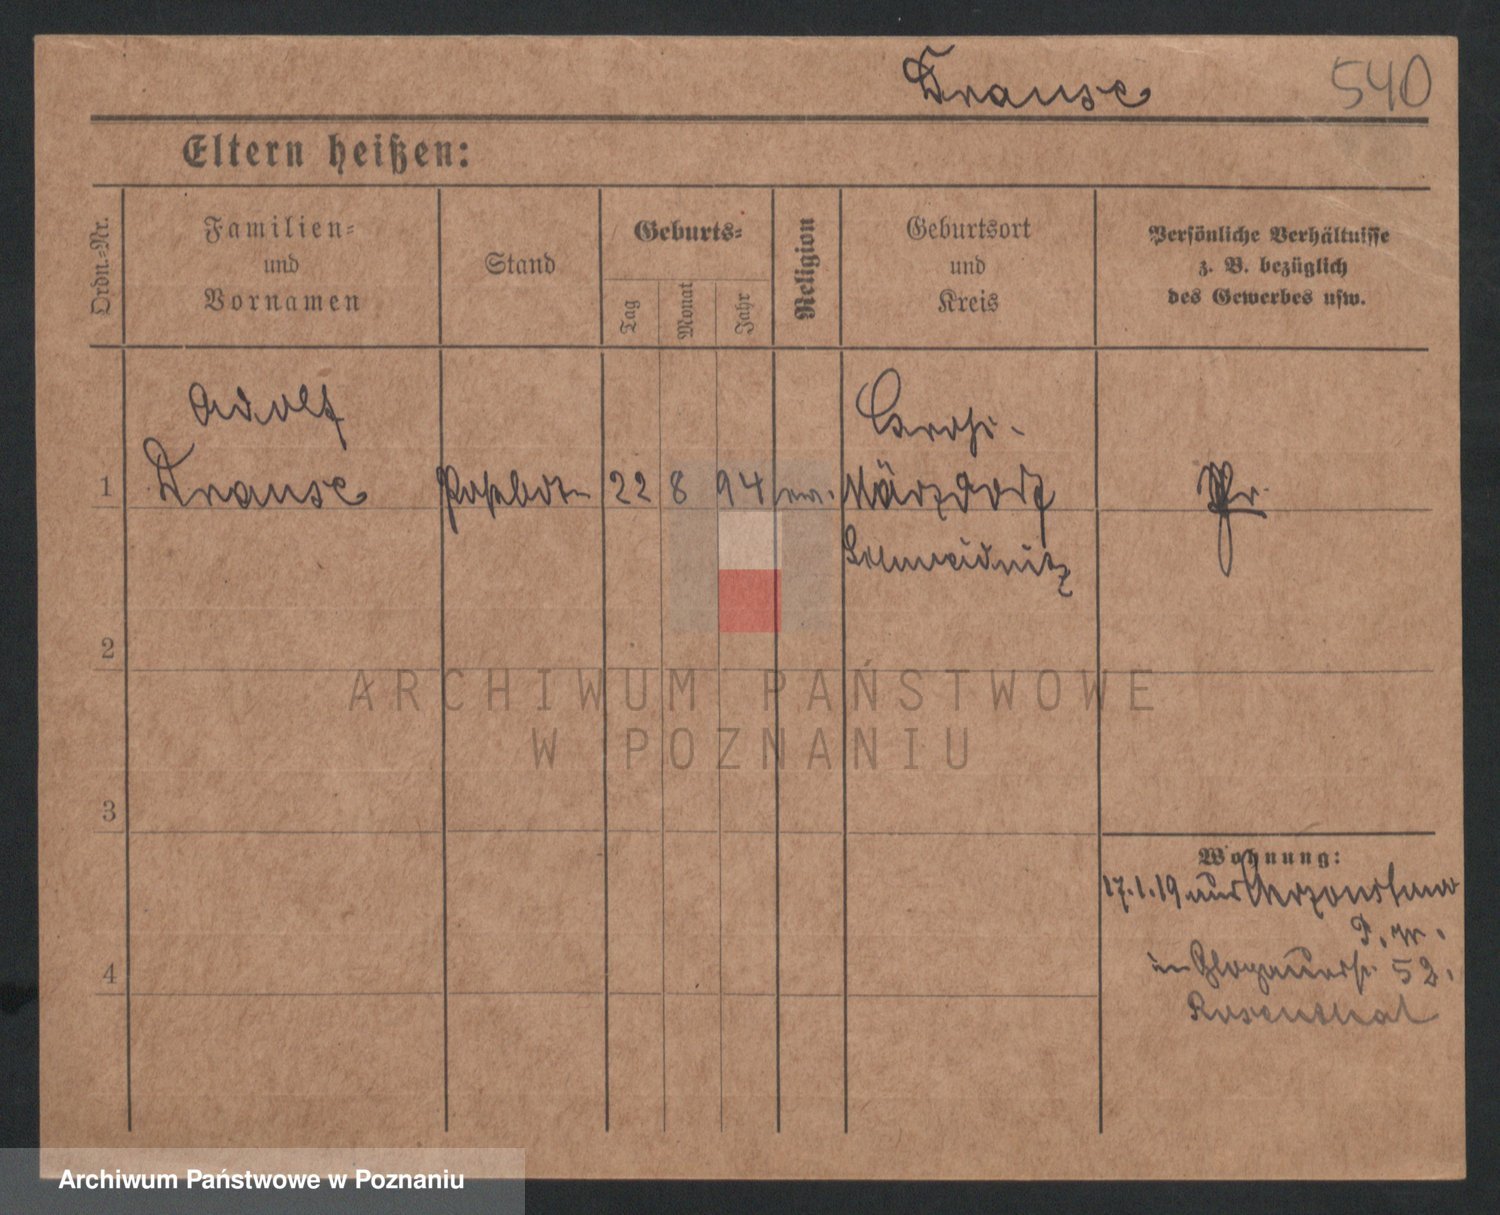 Krause 540
Eltern heißen:
Ordn.-Nr.
Familien-
und
Vornamen
Stand
Geburts-
Tag
Monat
Jahr
Religion
Geburtsort
und
Kreis
Persönliche Verhältnisse
z. B. bezüglich
des Gewerbes usw.
Adolf
1 Krause 22 8 94 ev. Märzdorf Pr.
Schweidnitz
2
3
4
Wohnung:
17.1.19 aus
in Glogauerstr. 52.
Rosenthal
ARCHIWUM PAŃSTWOWE
W POZNANIU
Archiwum Państwowe w Poznaniu